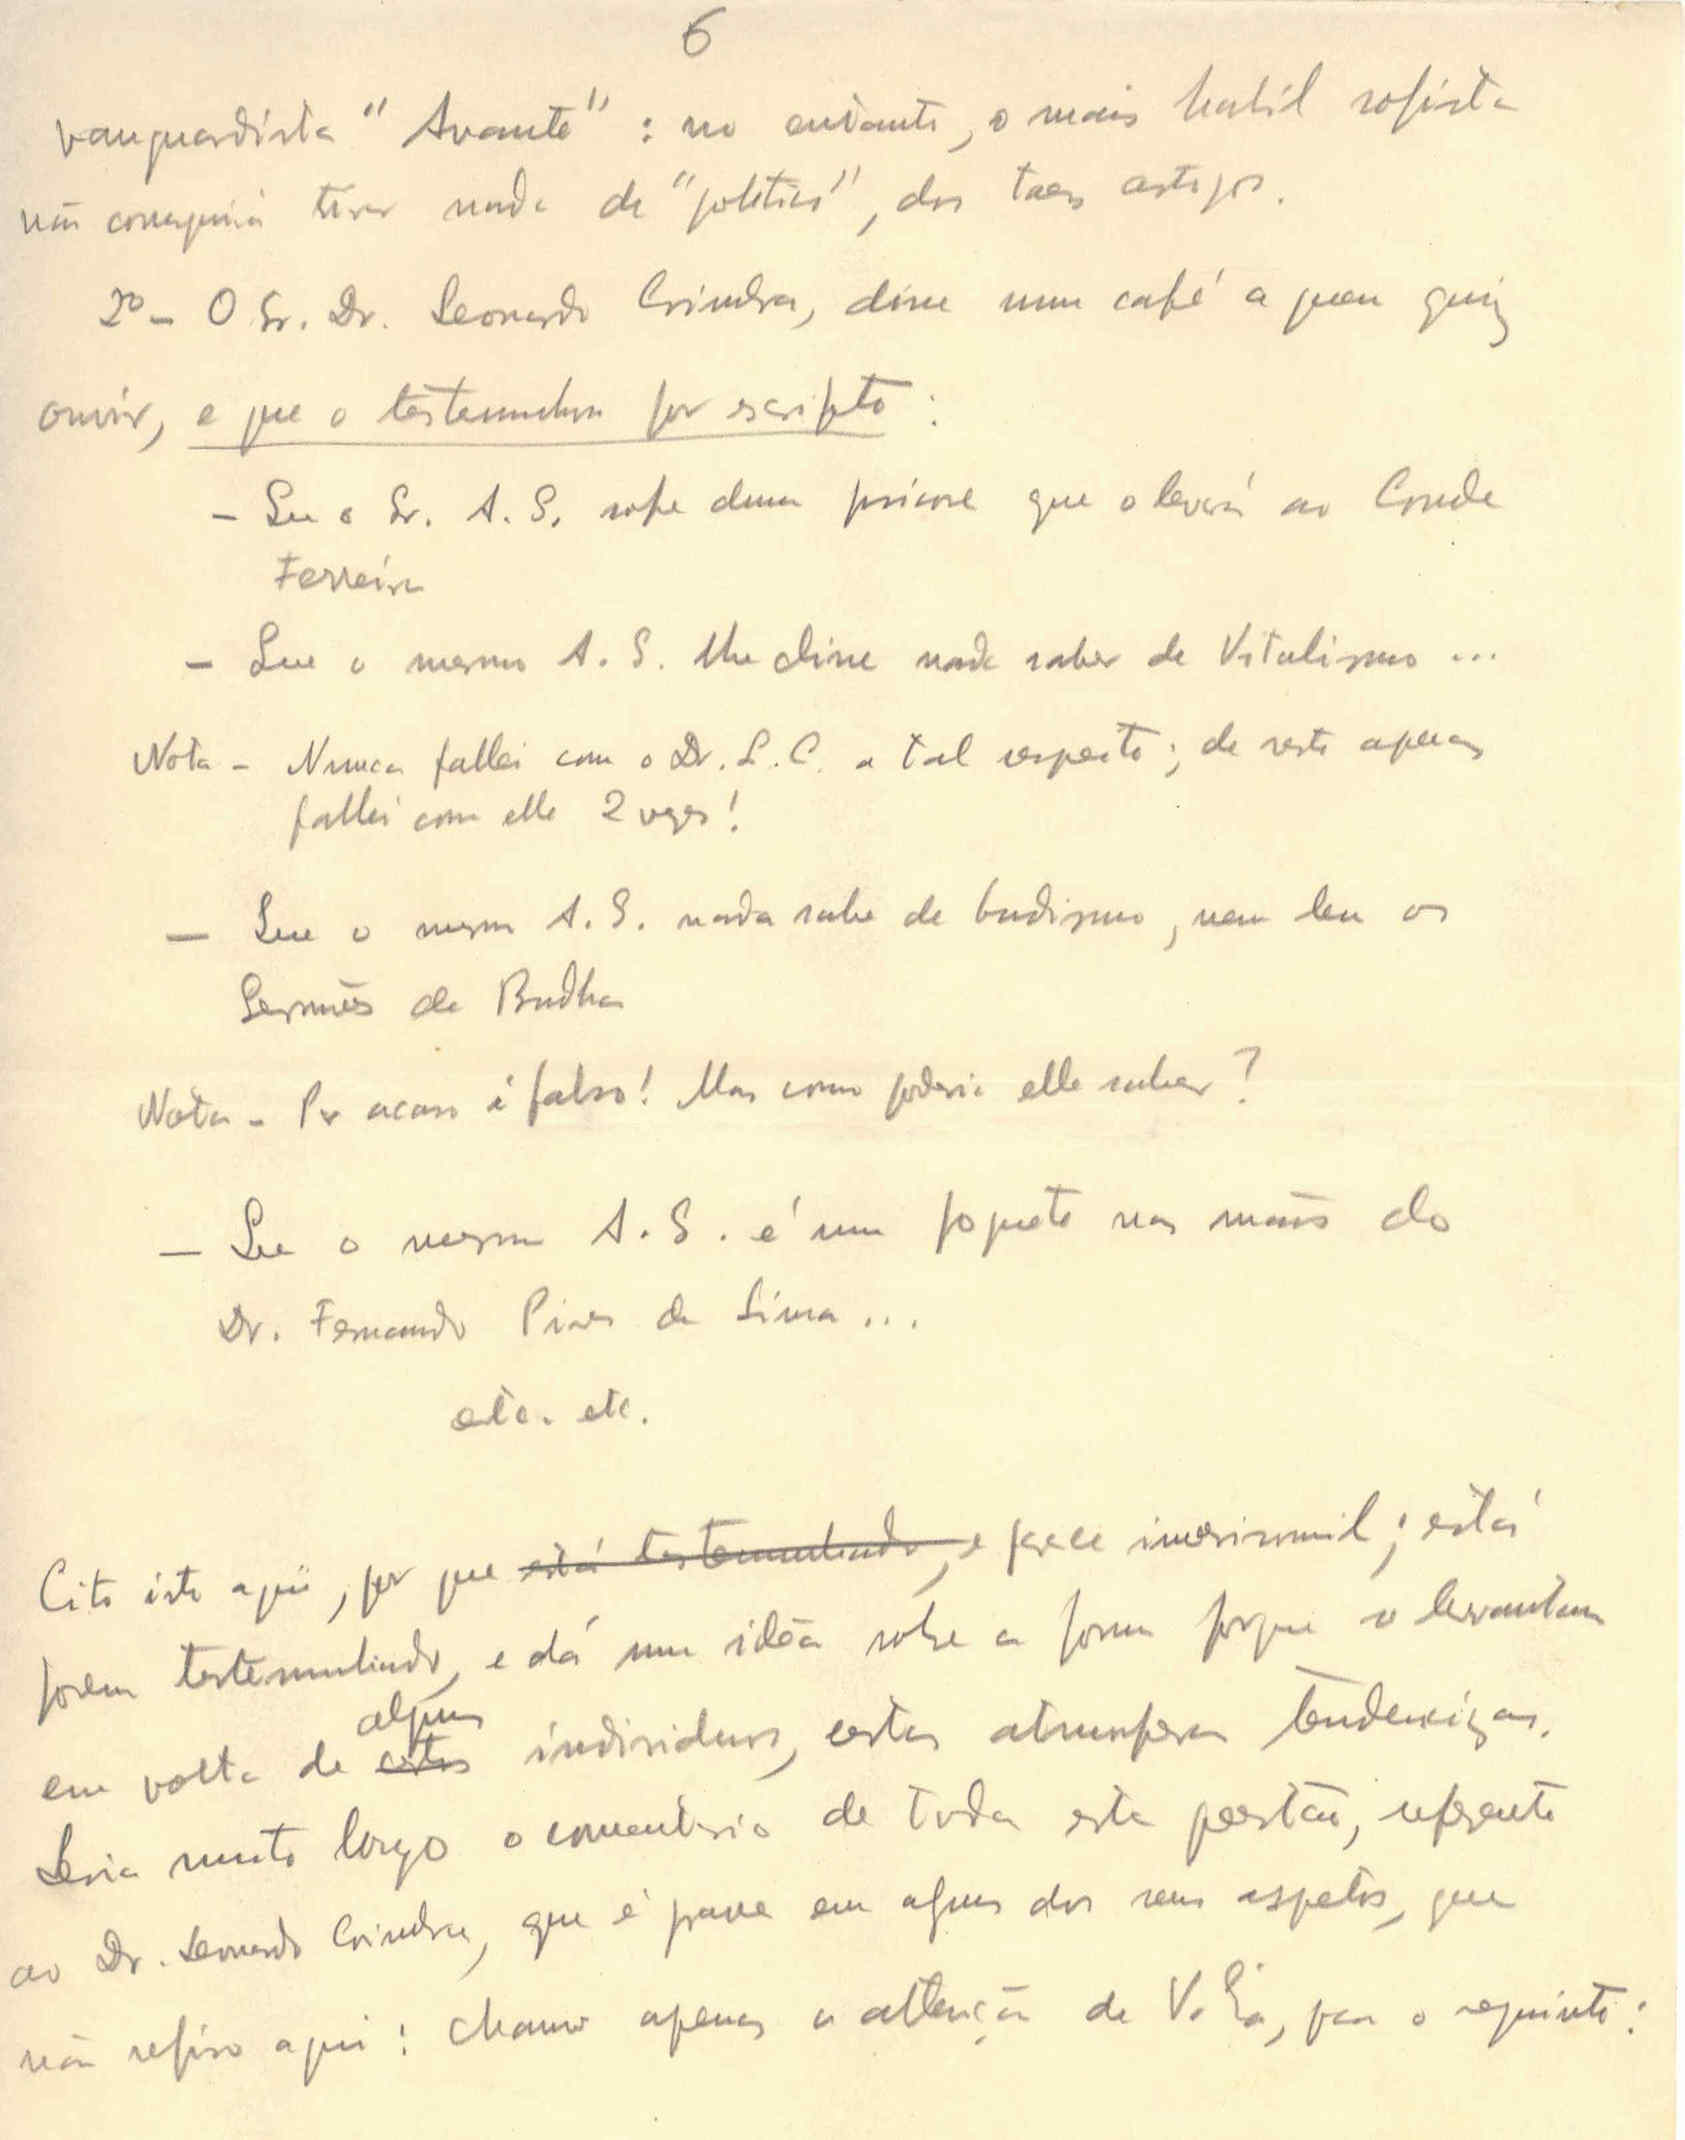 6
vanguardista "Avante" : no entanto, o mais habil sofista
não conseguirá tirar nada de "politico", dos taes artigos.
2º - O Sr. Dr. Leonardo Coimbra, disse num café a quem quiz
ouvir, e que o testemunhou por escripto :
- Que o Sr. A. S. sofre duma psicose que o levará ao Conde
Ferreira
- Que o mesmo A. S. lhe disse nada saber de Vitalismo ...
Nota - Nunca fallei com o Dr. L. C. a tal respeito ; de resto apenas
fallei com elle 2 vezes !
- Que o mesmo A. S. nada sabe de budismo, nem leu os
Sermões de Budha
Nota - Por acaso é falso ! Mas como poderia elle saber ?
- Que o mesmo A. S. é um foguete nas mãos do
Dr. Fernando Pires de Lima ...
etc. etc.
Cito isto aqui, por que está testemunhado, e parece inverisimil ; está
porem testemunhado, e dá uma idêa sobre a forma porque se levantam
alguns
em volta de certos individuos, certas atmosferas tendenciosas.
Seria muito longo o comentario de toda esta questão, referente
ao Dr. Leonardo Coimbra, que é grave em alguns dos seus aspetos, que
não refiro aqui : chamo apenas a attenção de V. Exa, para o seguinte :